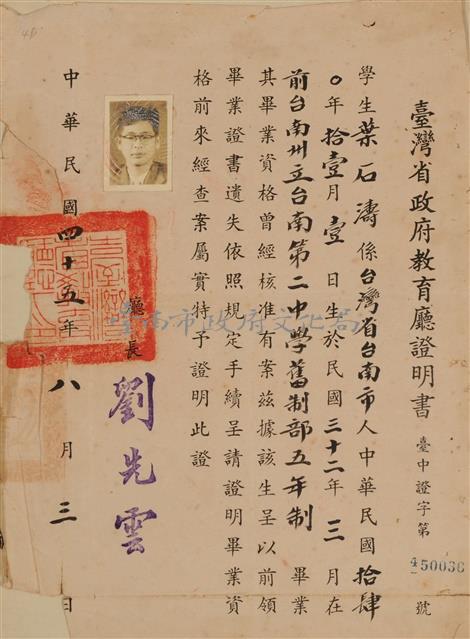 臺灣省政府教育廳證明書 臺中證字第 450036 號
學生葉石濤係台灣省台南市人中華民國拾肆
〇年拾壹月壹日生於民國三十二年三月在
前台南州立台南第二中學舊制部五年制畢業
其畢業資格曾經核准有案茲據該生呈以前領
畢業證書遺失依照規定手續呈請證明畢業資
格前來經查案屬實特予證明此證
廳長 劉先雲
中華民國四十五年八月三日
臺南市政府文化局